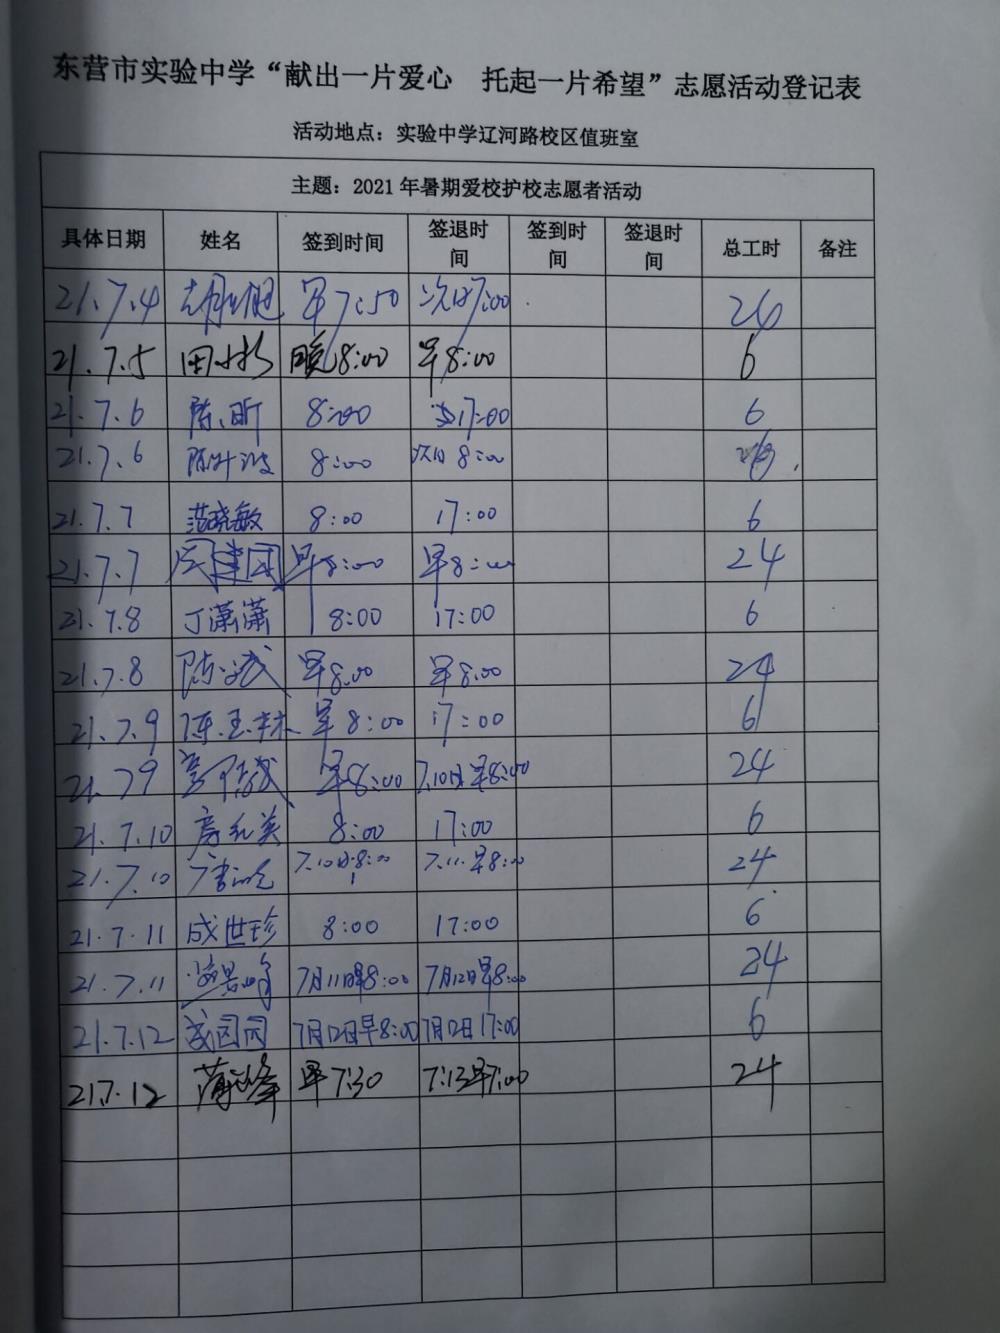 东营市实验中学“献出一片爱心　托起一片希望”志愿活动登记表
活动地点：实验中学辽河路校区值班室
主题：2021年暑期爱校护校志愿者活动
具体日期 姓名 签到时间 签退时间 签到时间 签退时间 总工时 备注
21.7.4 早7:50 次日7:00
21.7.5 晚8:00 早8:00 6
21.7.6 陈昕 8:00 17:00 6
21.7.6 8:00 次日8:00
21.7.7 范晓敏 8:00 17:00 6
21.7.7 早8:00 早8:00 24
21.7.8 丁潇潇 8:00 17:00 6
21.7.8 早8:00 早8:00 24
21.7.9 陈玉林 早8:00 17:00 6
21.7.9 早8:00 7.10日早8:00 24
21.7.10 8:00 17:00 6
21.7.10 7.10日8:00 7.11.早8:00 24
21.7.11 成世珍 8:00 17:00 6
21.7.11 7月11日早8:00 7月12日早8:00 24
21.7.12 7月12日早8:00 7月12日17:00 6
21.7.12 早7:30 7.13早7:00 24